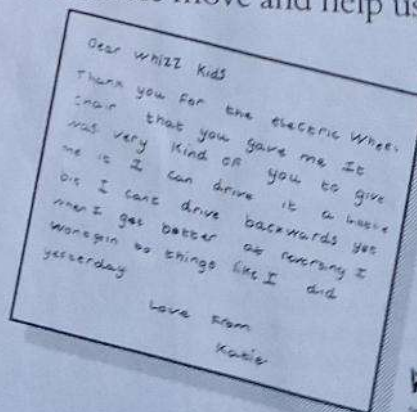 move and help us
Dear Whizz Kids
Thank you for the electric wheel
chair that you gave me It
was very kind of you to give
me it I can drive it a little
bit I cant drive backwards yet
when I get better at reversing I
wont go in to things like I did
yesterday
Love From
Katie